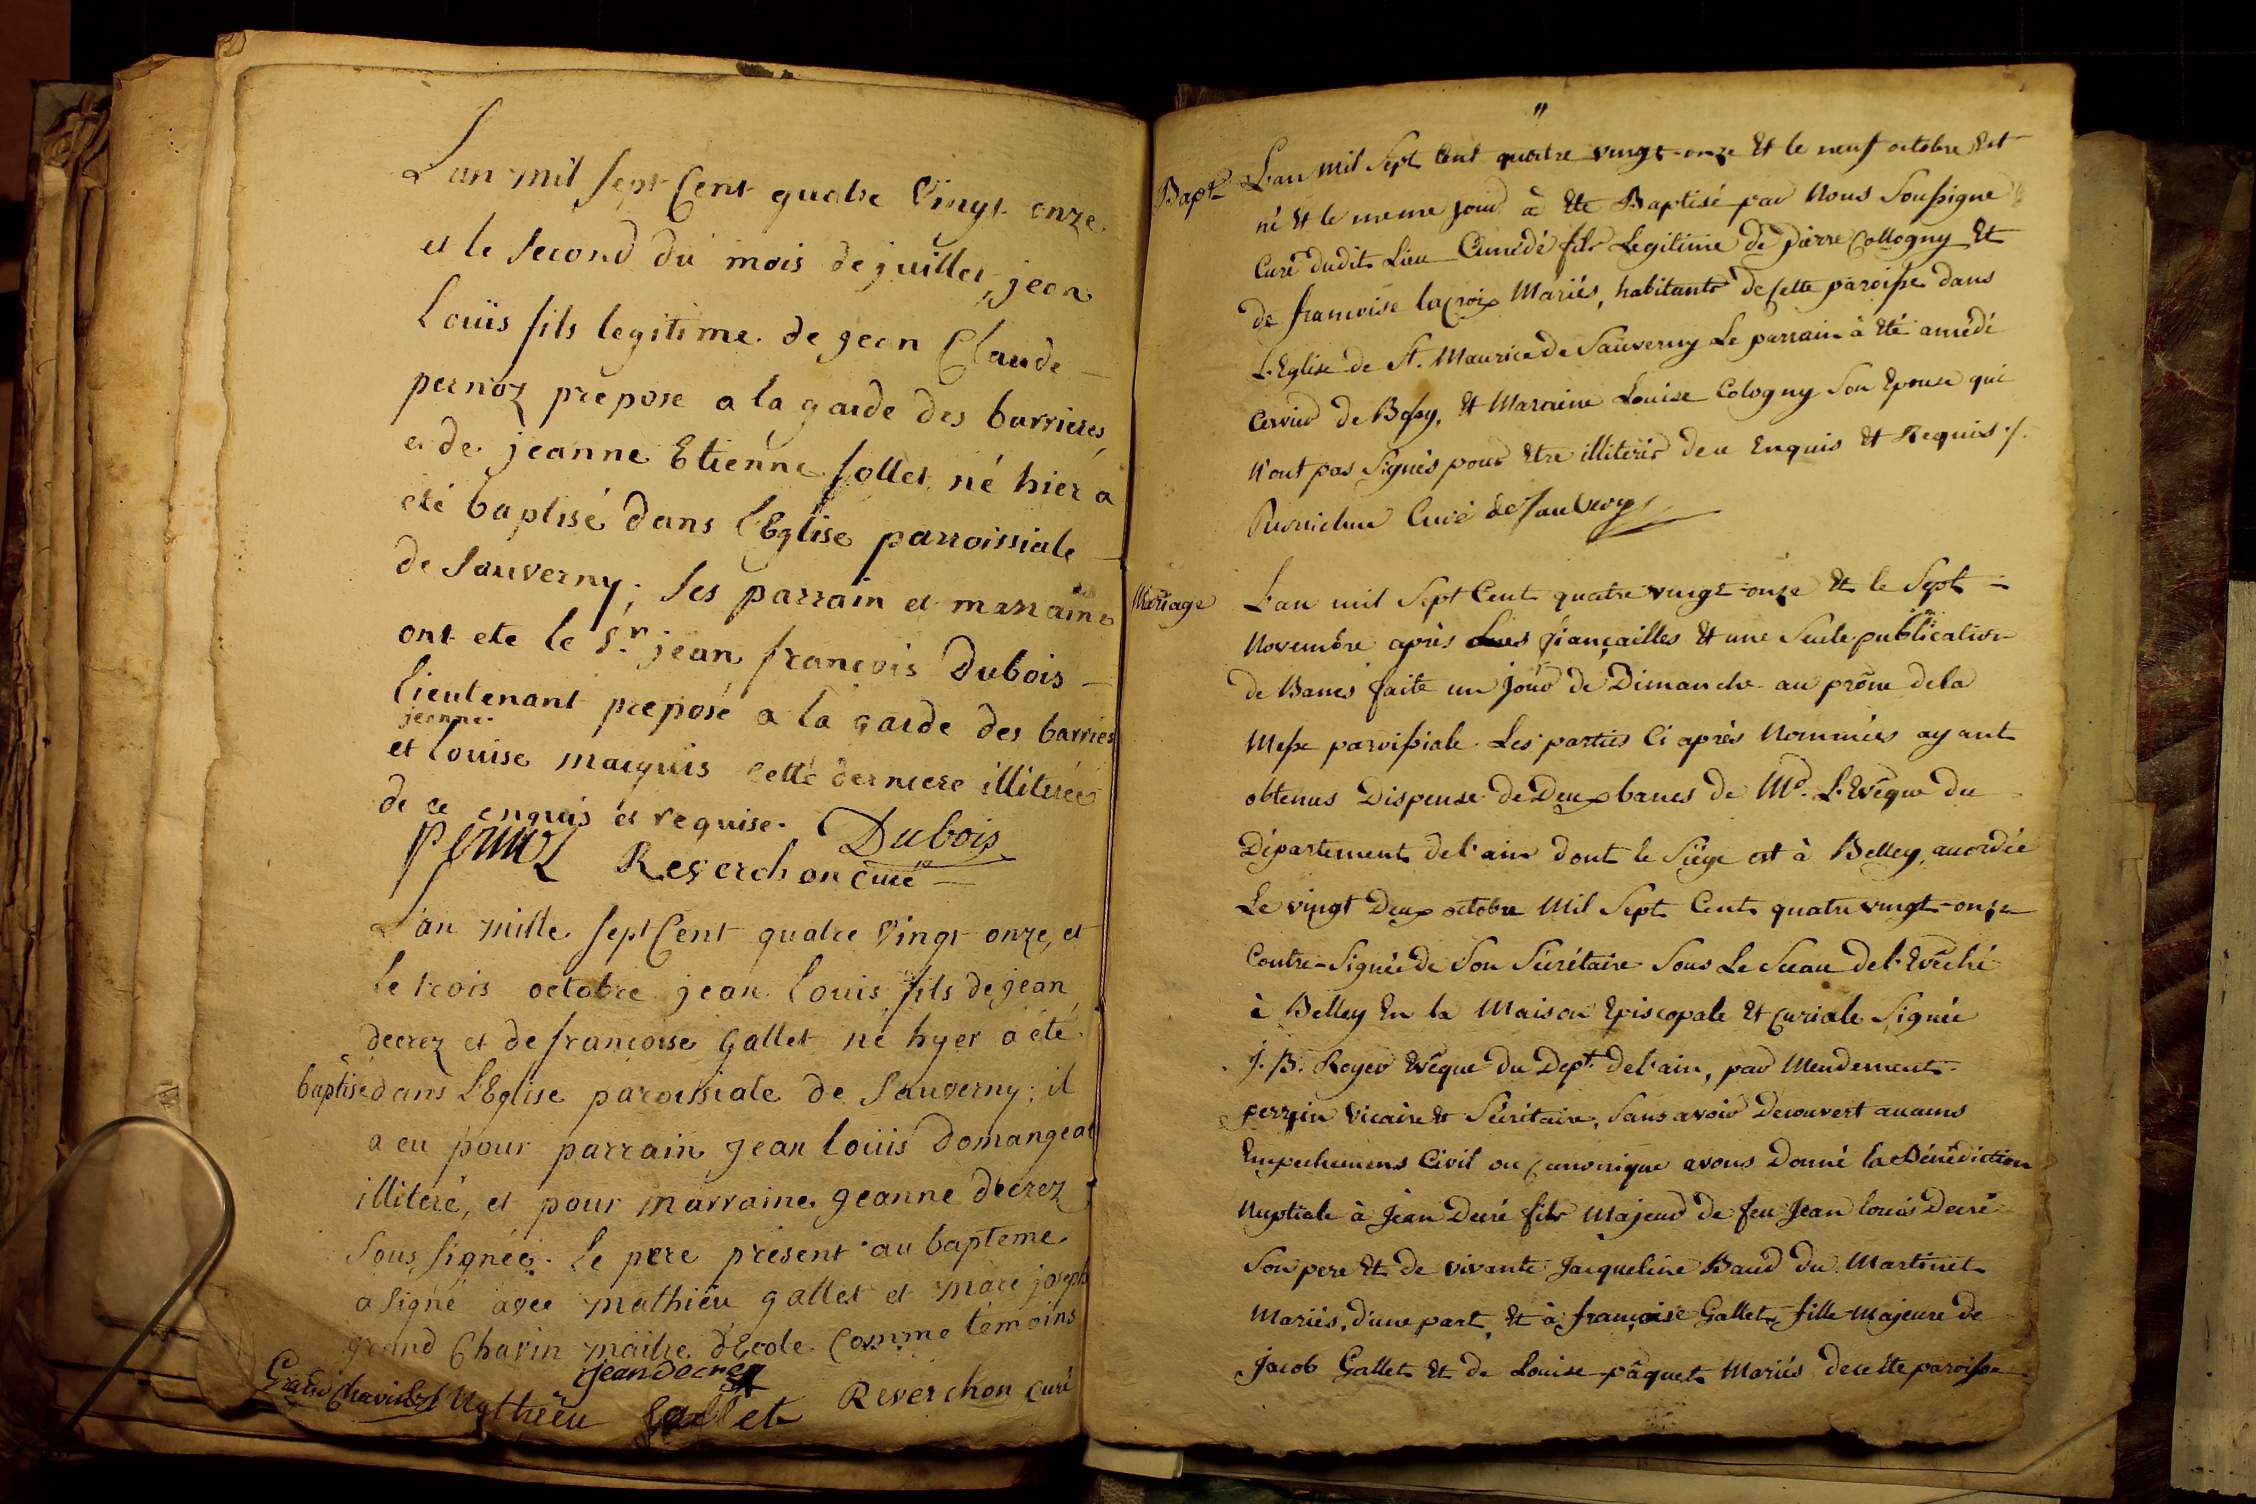 L'an mil sept Cent quatre Vingt onze
et le second du mois de juillet, jean
Louïs fils legitime de jean Claude
pernoz prepose a la garde des barrieres,
et de jeanne Etienne sollet né hier a
eté baptisé dans l'Eglise parroissiale
de Sauverny; ses parrain et marraine
ont ete le Sr. jean francois Dubois
lieutenant preposé a la garde des barries
jeanne
et louise marquis cette derniere illiterée
de ce enquis et requise. Dubois
pernoz Reverchon curé
L'an mille sept Cent quatre Vingt onze, et
le trois octobre jean louis fils de jean
decrez et de francoise gallet né hyer a été
baptisé dans l'Eglise paroissiale de Sauverny; il
a eu pour parrain jean loüis domangeat
illiteré, et pour marraine jeanne decrez
Sous signée. Le pere présent au bapteme
a signé avec mathieu gallet et marc joseph
grand Chavin maitre d'Ecole Comme témoins
jean decrez
Grand Chavin Mathieu gallet Reverchon curé
"
Bapt. L'an mil Sept Cent quatre vingt-onze Et le neuf octobre Est
né Et le meme jour à Eté Baptisé par Nous Soussigné
Curé dudit Lieu Amédé fils Legitime de pierre Collogny Et
de francoise lacroix Mariés, habitants de cette paroisse dans
L'Eglise de St. Maurice de Sauverny Le parrain à Eté amédé
de Bossy, Et Maraine Louise Cologny Son Epouse qui
n'ont pas Signés pour Etre illiterés de ce Enquis Et Requis ./.
Curé de Sauverny
Mariage L'an mil Sept Cent quatre vingt-onze Et le Sept
Novembre après Les fiançailles Et une Seule publication
de Bancs faite un jour de Dimanche au prône de la
Messe paroissiale Les parties Ci après Nommées ayant
obtenus Dispense de Deux bancs de Mr. L'Evêque du
Département de l'ain dont le Siège est à Belley, accordée
Le vingt Deux octobre Mil Sept Cent quatre vingt-onze
Contre-Signée de Son Sécrétaire Sous Le Sceau de l'Evêché
à Belley En la Maison Episcopale Et Curiale Signée
J. B. Royer Evêque du Dept. de l'ain, par Mendement
perrin Vicaire Et Sécritaire, Sans avoir Découvert aucuns
Empechemens Civil ou Canonique avons Donné la Bénédiction
Nuptiale à Jean Decré fils Majeur de feu Jean louis Decré
Son pere Et de vivante Jacqueline Baud du Martinet
Mariés, d'une part, Et à françoise Gallet fille Majeure de
Jacob Gallet Et de Louise pâquet Mariés de cette paroisse